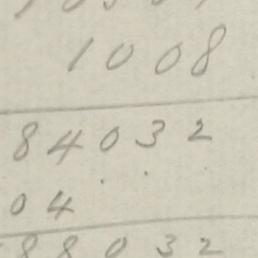 1008
84032
04 . .
88032